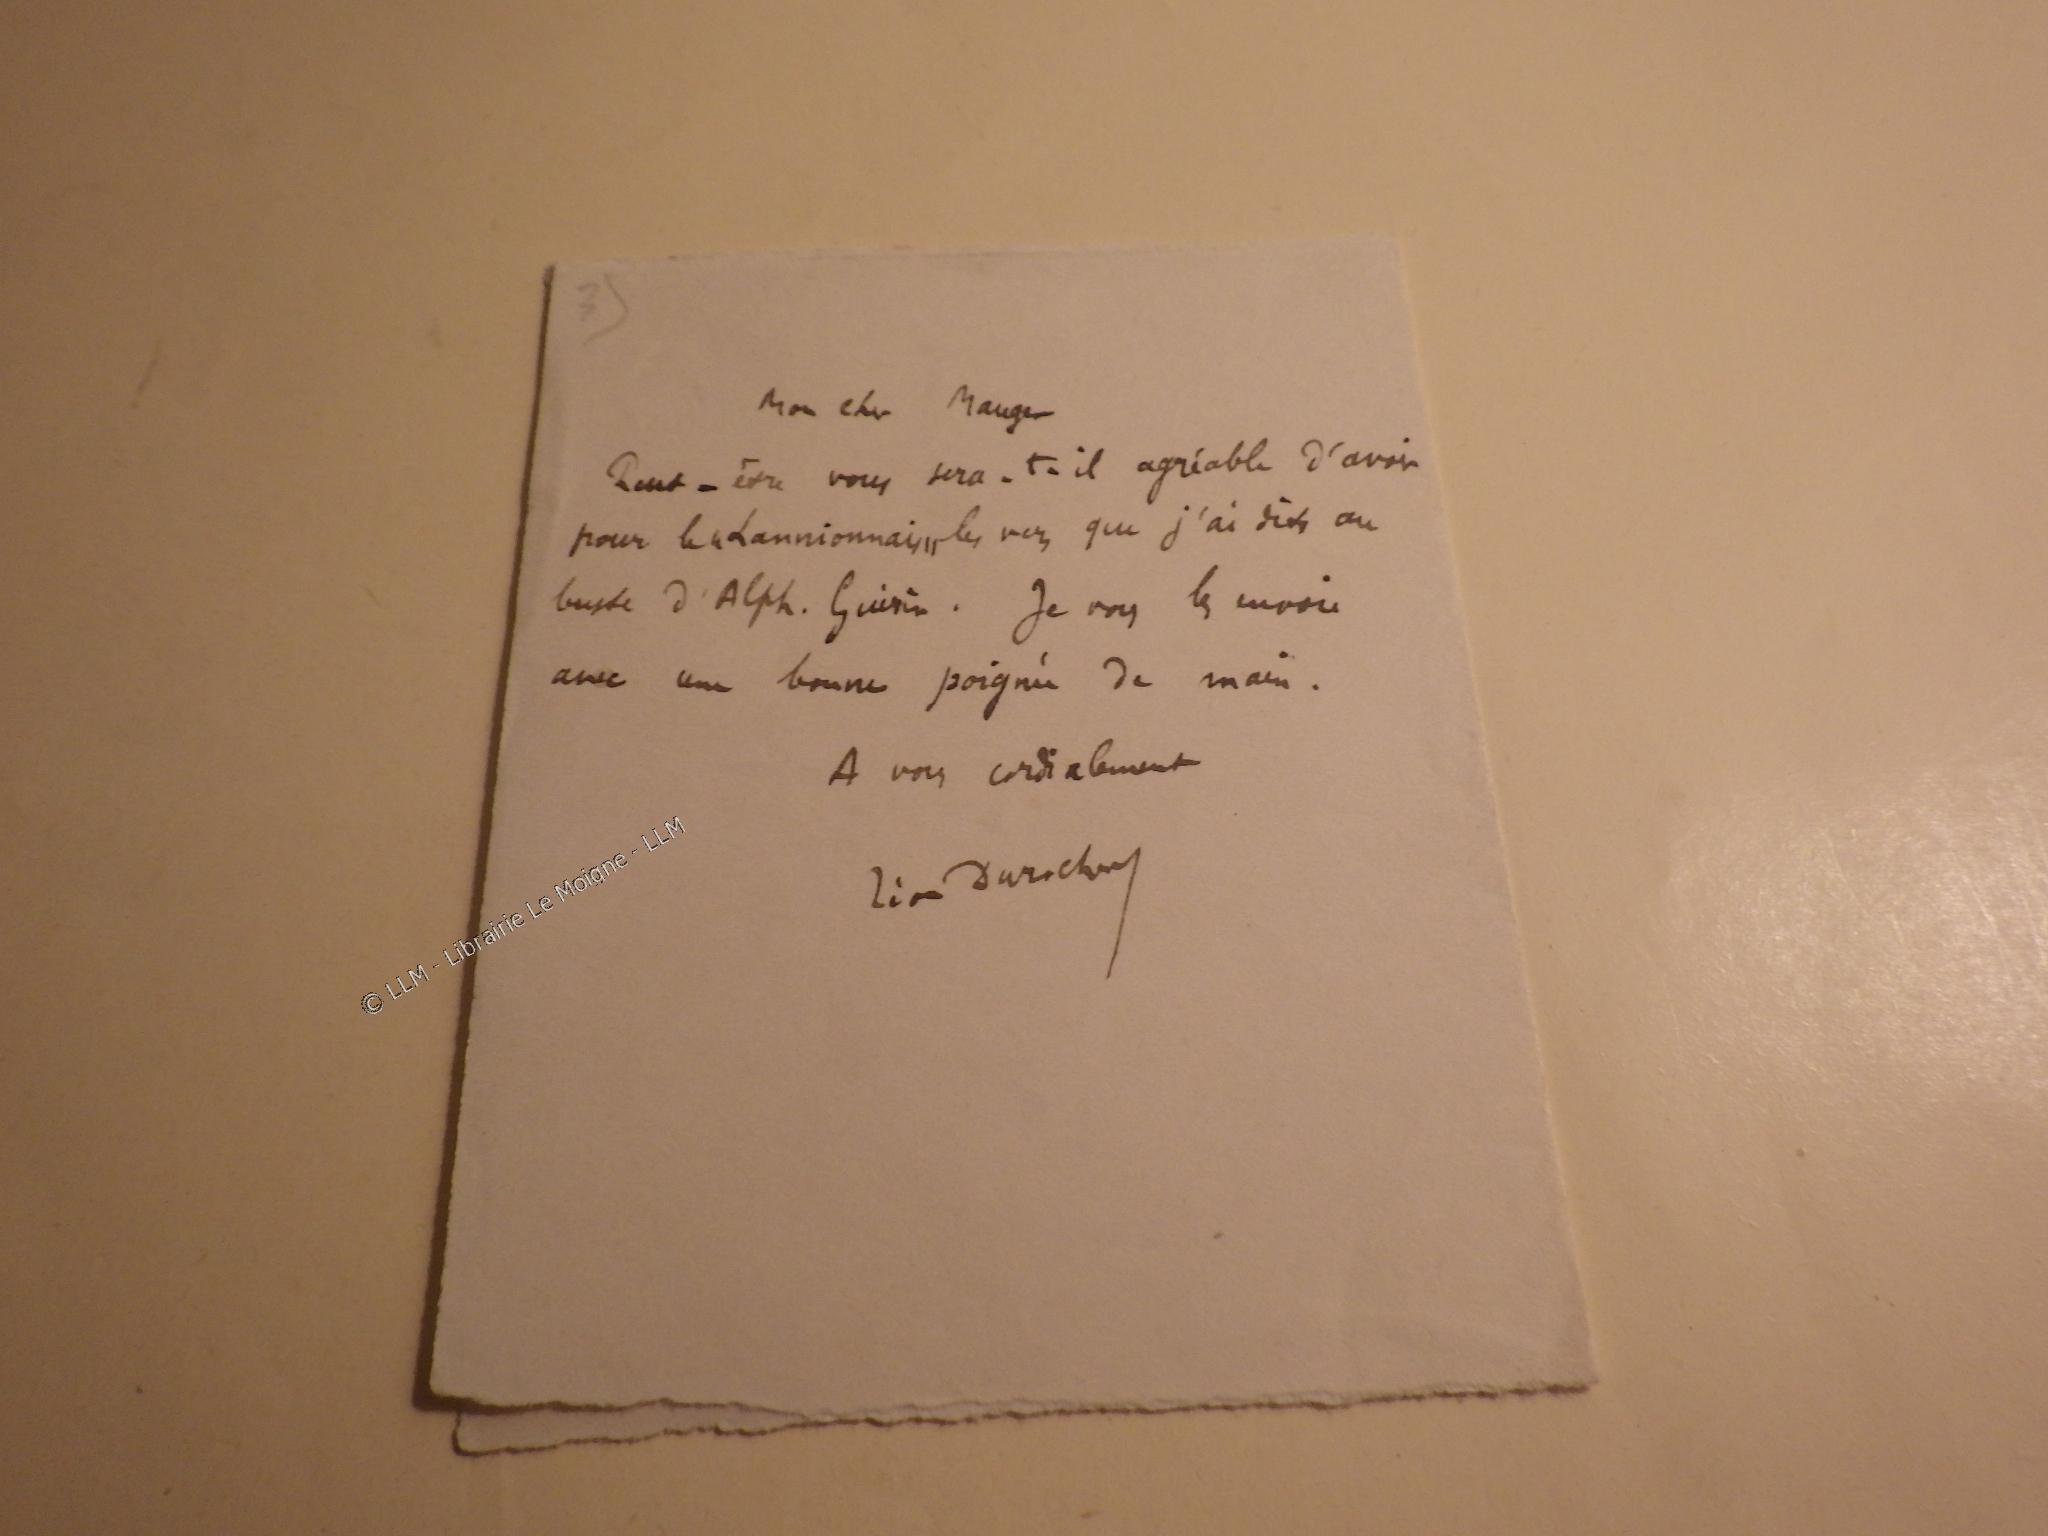 3)
Mon cher Mauger
Peut-être vous sera-t-il agréable d'avoir
pour le "Lannionnais" les vers que j'ai dits au
buste d'Alph. Guérin. Je vous les envoie
avec une bonne poignée de main.
A vous cordialement
Léon Durocher
© LLM - Librairie Le Moigne - LLM